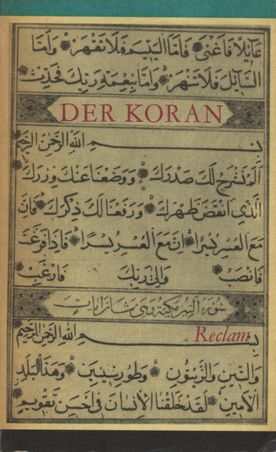 عَائِلًا فَأَغْنَى فَأَمَّا الْيَتِيمَ فَلَا تَقْهَرْ وَأَمَّا
السَّائِلَ فَلَا تَنْهَرْ وَأَمَّا بِنِعْمَةِ رَبِّكَ فَحَدِّثْ
DER KORAN
بِسْمِ اللهِ الرَّحْمٰنِ الرَّحِيمِ
أَلَمْ نَشْرَحْ لَكَ صَدْرَكَ وَوَضَعْنَا عَنْكَ وِزْرَكَ
الَّذِي أَنْقَضَ ظَهْرَكَ وَرَفَعْنَا لَكَ ذِكْرَكَ فَإِنَّ
مَعَ الْعُسْرِ يُسْرًا إِنَّ مَعَ الْعُسْرِ يُسْرًا فَإِذَا فَرَغْتَ
فَانْصَبْ وَإِلَى رَبِّكَ فَارْغَبْ
سورة التين مكية وهي ثمان ايات
بِسْمِ اللهِ الرَّحْمٰنِ الرَّحِيمِ
Reclam
وَالتِّينِ وَالزَّيْتُونِ وَطُورِ سِينِينَ وَهٰذَا الْبَلَدِ
الْأَمِينِ لَقَدْ خَلَقْنَا الْإِنْسَانَ فِي أَحْسَنِ تَقْوِيمٍ